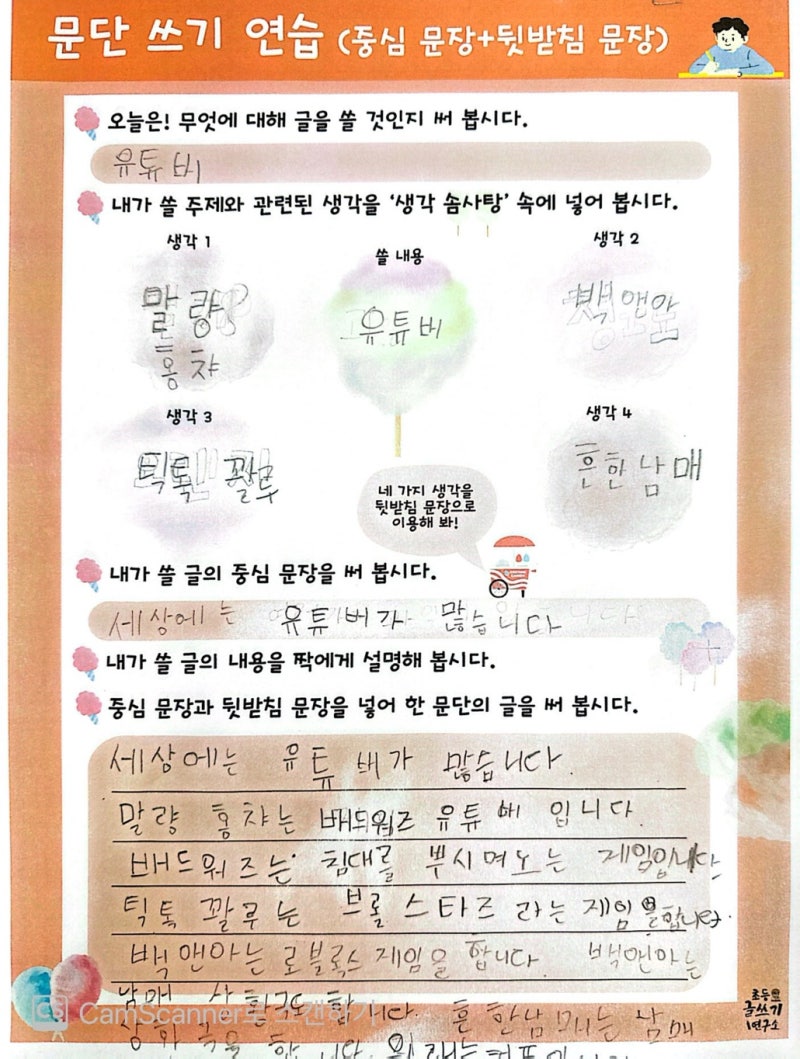 문단 쓰기 연습 (중심 문장+뒷받침 문장)
오늘은! 무엇에 대해 글을 쓸 것인지 써 봅시다.
유튜비
내가 쓸 주제와 관련된 생각을 '생각 솜사탕' 속에 넣어 봅시다.
생각 1
쓸 내용
생각 2
말량
홍챠
유튜버
백앤아
생각 3
생각 4
틱톡 꽐루
흔한남매
네 가지 생각을
뒷받침 문장으로
이용해 봐!
내가 쓸 글의 중심 문장을 써 봅시다.
세상에는 유튜버가 많습니다
내가 쓸 글의 내용을 짝에게 설명해 봅시다.
중심 문장과 뒷받침 문장을 넣어 한 문단의 글을 써 봅시다.
세상에는 유튜버가 많습니다.
말량 홍챠는 배드워즈 유튜버 입니다.
배드워즈는 침대를 뿌시며노는 게임입니다
틱톡 꽐루는 브롤스타즈 라는 게임을합니다.
백앤아는 로블록스 게임을 합니다. 백앤아는
남매 합니다. 흔한남매는 남매
CS CamScanner로 스캔하기
초등
글쓰기
연구소